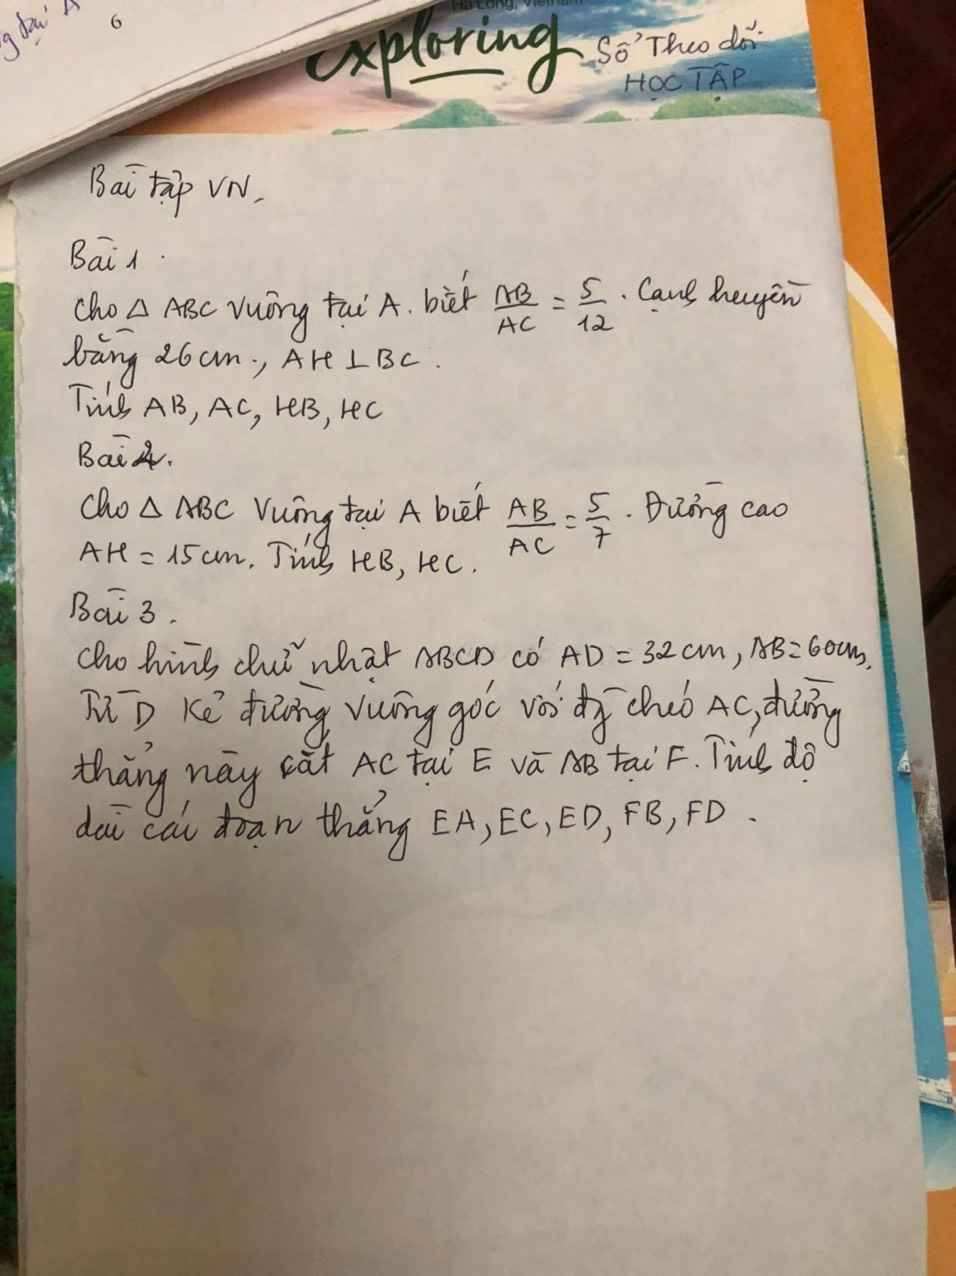 6
Ha Long, Vietnam
exploring
Sổ Theo dõi
HỌC TẬP
Bài tập VN.
Bài 1.
Cho △ ABC vuông tại A. biết AB/AC = 5/12. Cạnh huyền
bằng 26 cm., AH ⊥ BC.
Tính AB, AC, HB, HC
Bài 2.
Cho △ ABC vuông tại A biết AB/AC = 5/7. Đường cao
AH = 15 cm. Tính HB, HC.
Bài 3.
Cho hình chữ nhật ABCD có AD = 32 cm, AB = 60cm.
Từ D kẻ đường vuông góc với đg chéo AC, đường
thẳng này cắt AC tại E và AB tại F. Tính độ
dài các đoạn thẳng EA, EC, ED, FB, FD.